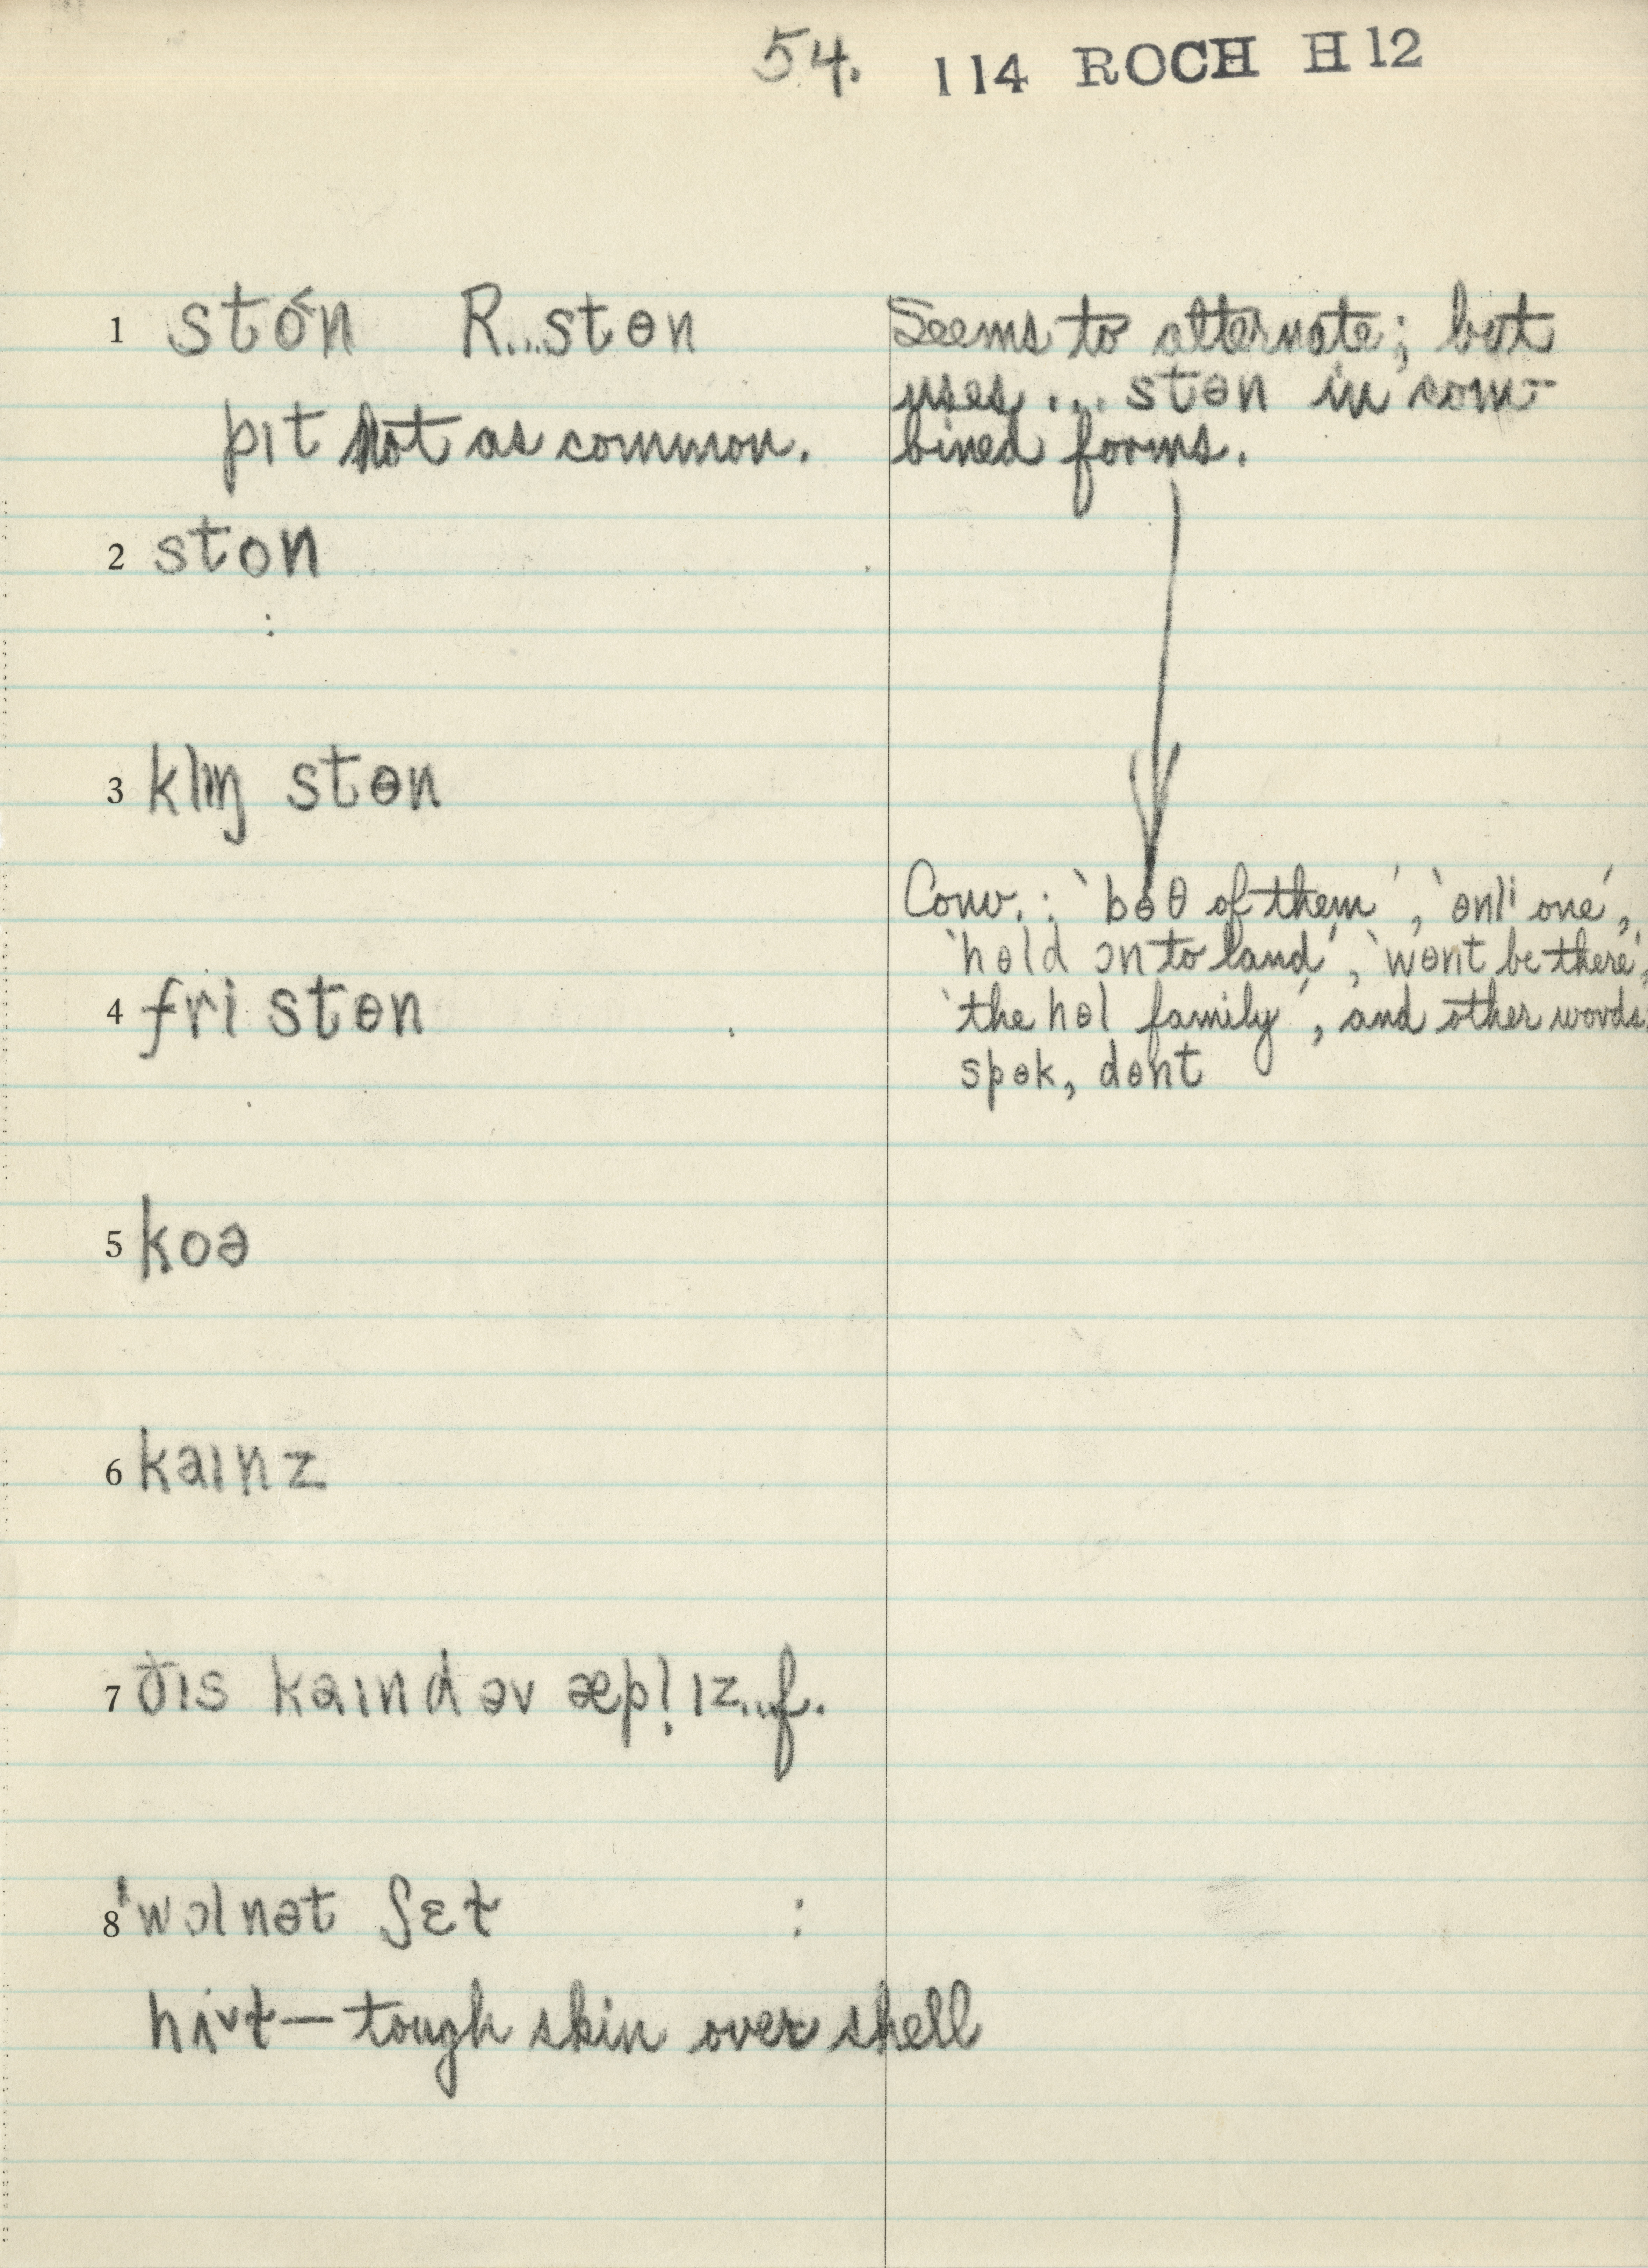 54. 114 ROCH H12
1 sto˂n R...stɵn
pɪt Not as common.
Seems to alternate; but
uses ... stɵn in com-
bined forms.
2 ston
:
3 klɪŋ stɵn
4 fri stɵn
Conv.: 'bɵθ of them', 'ɵnlɪ one',
'hɵld ɔn to land', 'wɵnt be there',
'the hɵl family', and other words
spɵk, dɵnt
5 koə
6 kaɪnz
7 ðɪs kaɪnd əv æpl̩ ɪz...f.
8 'wɔlnət ʃɛɫ :
tough skin over shell